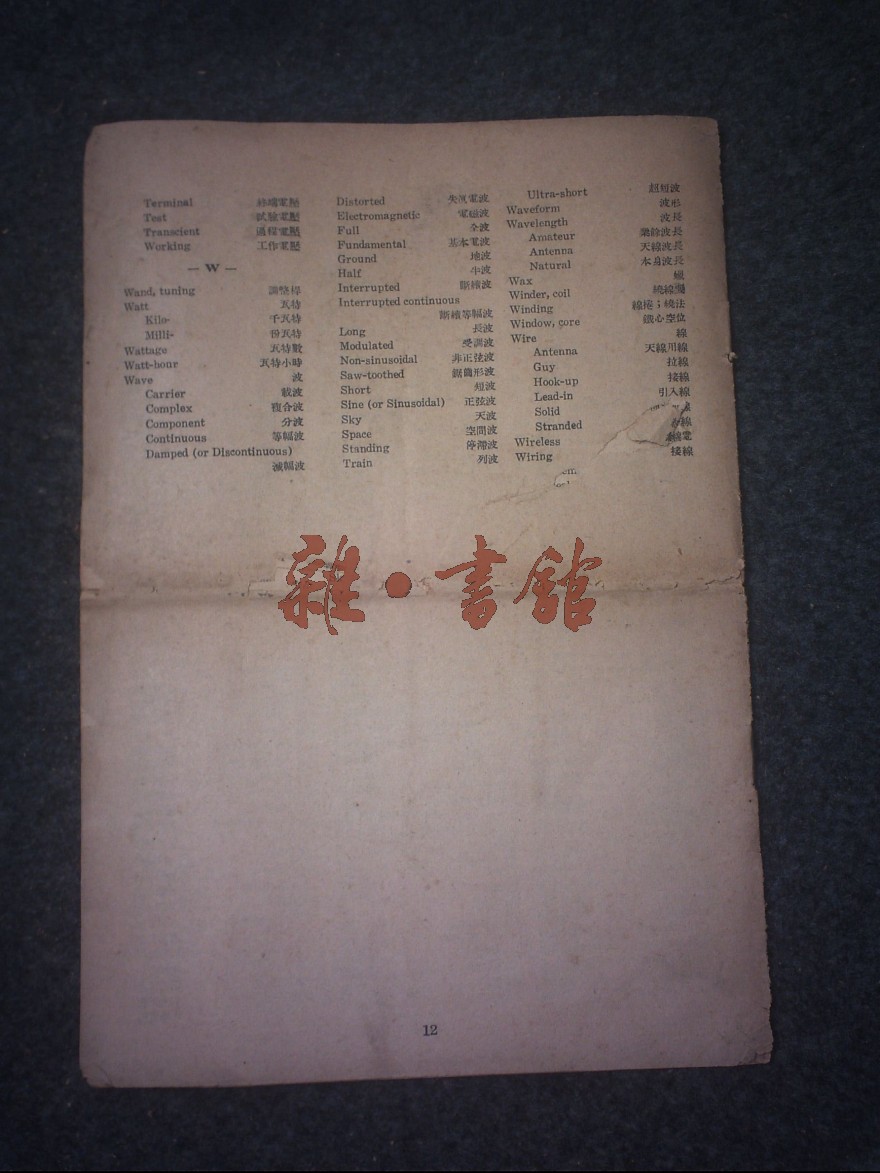 Terminal 終端電壓
Test 試驗電壓
Transcient 過程電壓
Working 工作電壓
— W —
Wand, tuning 調整桿
Watt 瓦特
Kilo- 千瓦特
Milli- 份瓦特
Wattage 瓦特數
Watt-hour 瓦特小時
Wave 波
Carrier 載波
Complex 複合波
Component 分波
Continuous 等幅波
Damped (or Discontinuous)
減幅波
Distorted 失眞電波
Electromagnetic 電磁波
Full 全波
Fundamental 基本電波
Ground 地波
Half 半波
Interrupted 斷續波
Interrupted continuous
斷續等幅波
Long 長波
Modulated 受調波
Non-sinusoidal 非正弦波
Saw-toothed 鋸齒形波
Short 短波
Sine (or Sinusoidal) 正弦波
Sky 天波
Space 空間波
Standing 停滯波
Train 列波
Ultra-short 超短波
Waveform 波形
Wavelength 波長
Amateur 業餘波長
Antenna 天線波長
Natural 本身波長
Wax 蠟
Winder, coil 繞線機
Winding 線捲；繞法
Window, core 鐵心空位
Wire 線
Antenna 天線用線
Guy 拉線
Hook-up 接線
Lead-in 引入線
Solid 線
Stranded 線
Wireless 線電
Wiring 接線
雜·書館
12